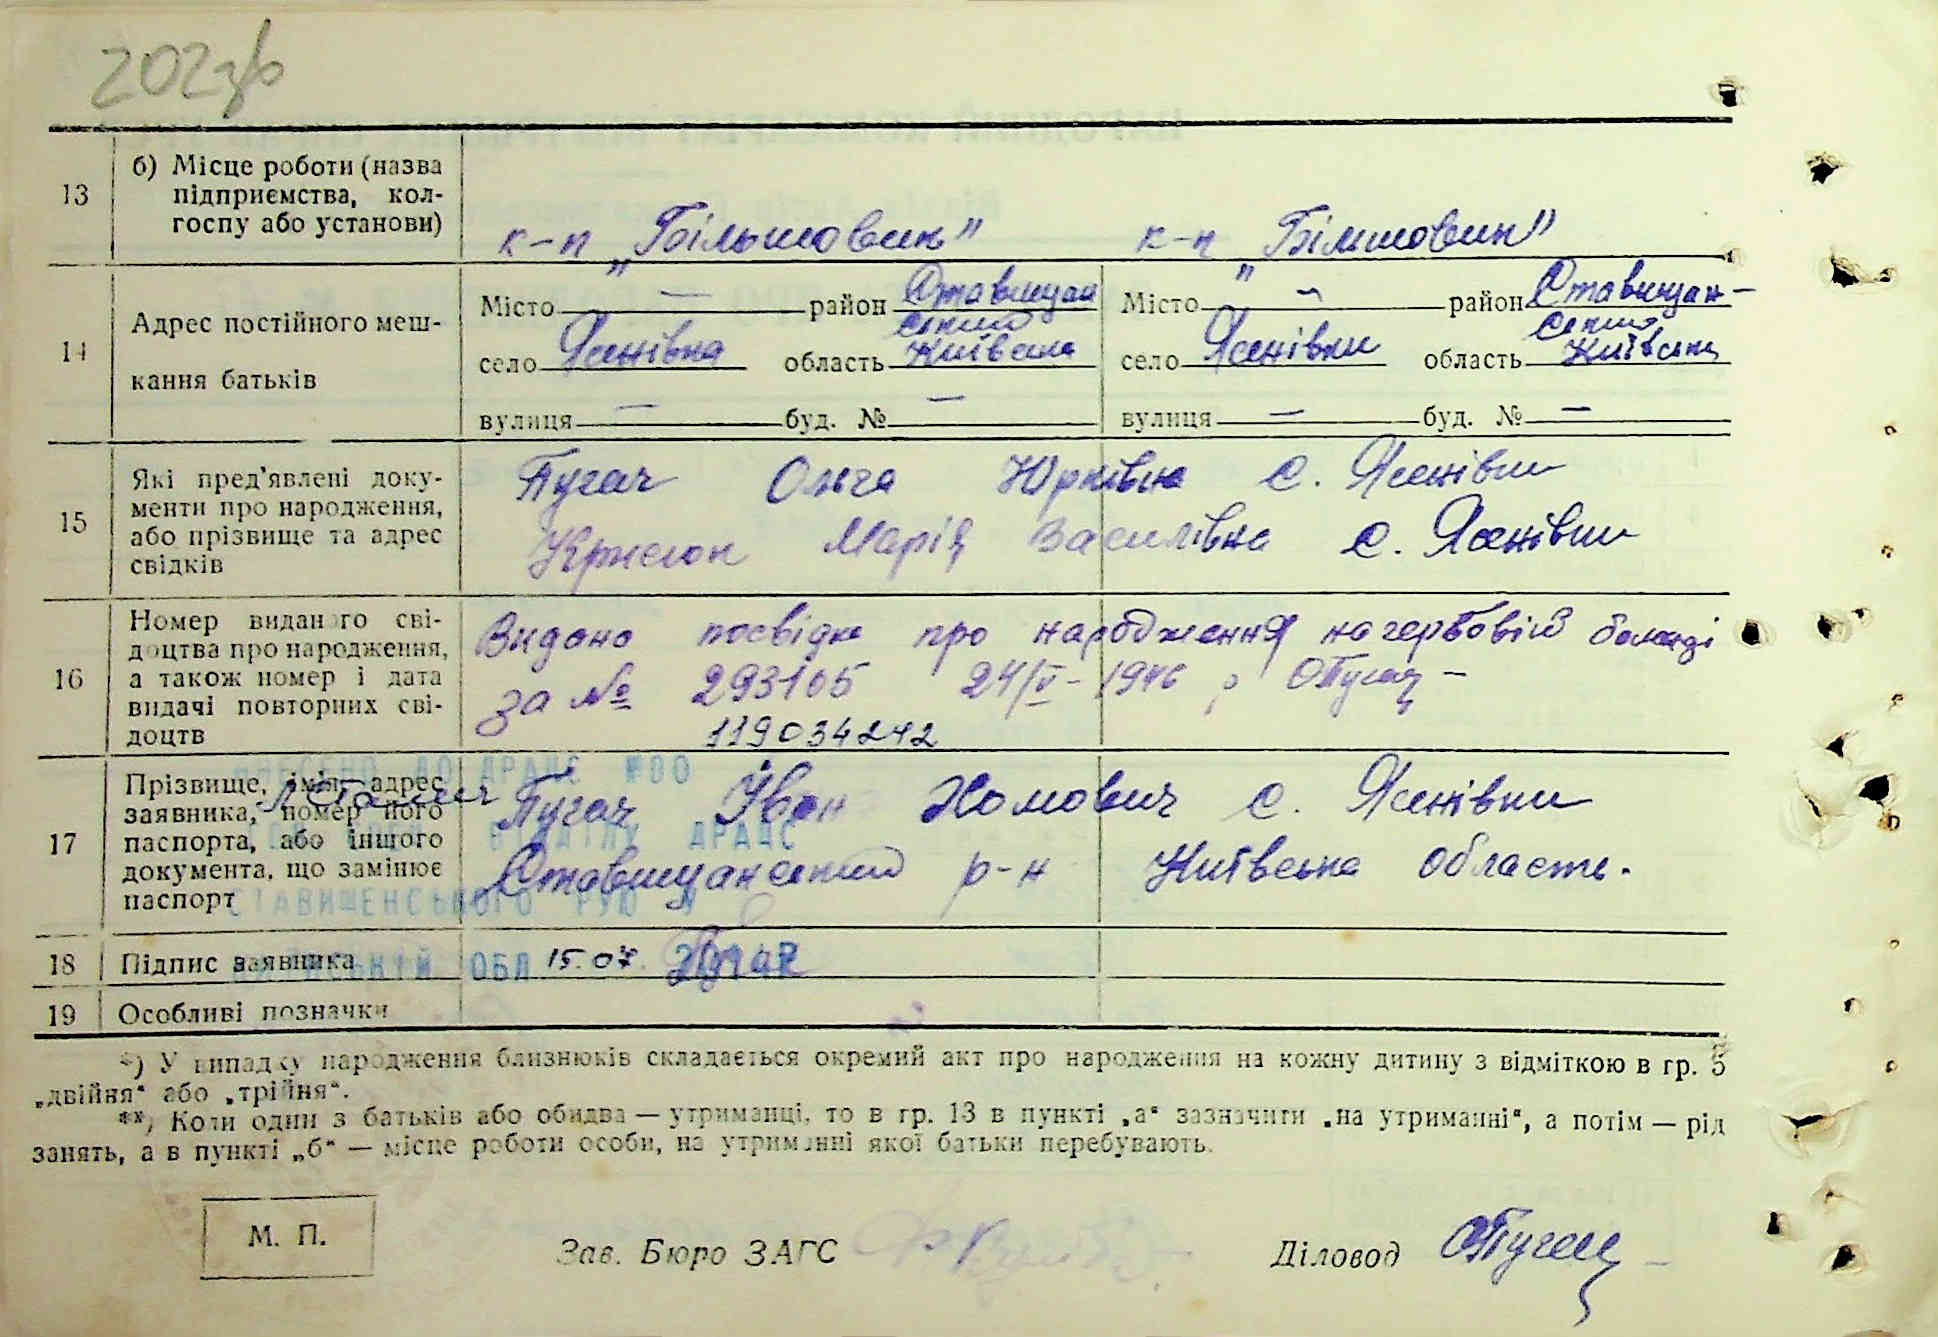 202зв
13 б) Місце роботи (назва
підприємства, кол-
госпу або установи)
к-п „Більшовик" к-п „Більшовик"
14 Адрес постійного меш-
кання батьків
Місто — район Ставищан Місто — район Ставищан-
ський ський
село Ясенівка область Київська село Ясенівки область Київська
вулиця — буд. № — вулиця — буд. № —
15 Які пред'явлені доку-
менти про народження,
або прізвище та адрес
свідків
Пугач Ольга Юрківна с. Ясенівки
Марія Василівна с. Ясенівки
16 Номер виданого сві-
доцтва про народження,
а також номер і дата
видачі повторних сві-
доцтв
Видано посвідка про народження на гербовій
за № 293105 24/V-1946 р ОПугач-
119034242
17 Прізвище, імя, адрес
заявника, номер його
паспорта, або іншого
документа, що замінює
паспорт
Пугач Іван Хомович с. Ясенівки
Ставищанський р-н Київська область.
ВНЕСЕНО ДО ДРАЦС №00
ВІДДІЛУ ДРАЦС
СТАВИЩЕНСЬКОГО РУЮ У
КИЇВСЬКІЙ ОБЛ 15.07.
18 Підпис заявника Пугач
19 Особливі позначки
*) У випадку народження близнюків складається окремий акт про народження на кожну дитину з відміткою в гр. 5
„двійня" або „трійня".
**) Коли один з батьків або обидва — утриманці, то в гр. 13 в пункті „а" зазначити „на утриманні", а потім — рід
занять, а в пункті „б" — місце роботи особи, на утриманні якої батьки перебувають.
М. П.
Зав. Бюро ЗАГС Діловод ОПугач